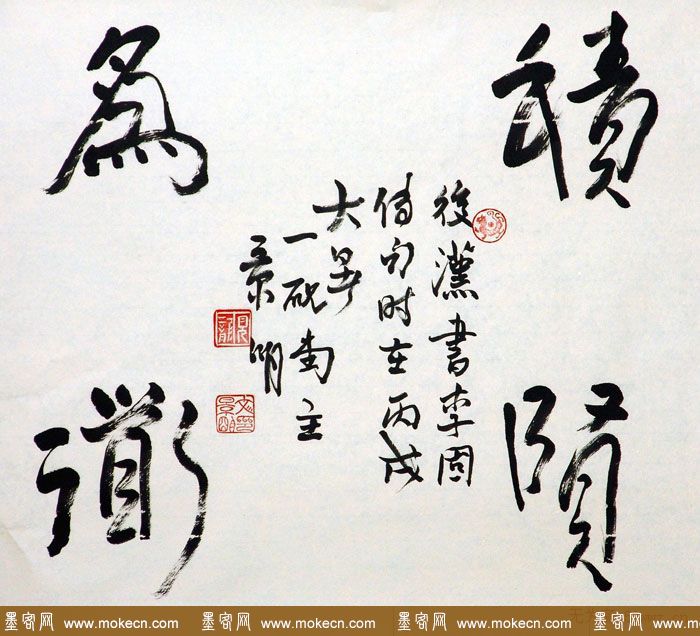 積賢
爲衜
後漢書李固
傳句时在丙戌
大暑
一砚堂主
景明
墨客网 www.mokecn.com 墨客网 www.mokecn.com 墨客网 www.mokecn.com 墨客网 www.m